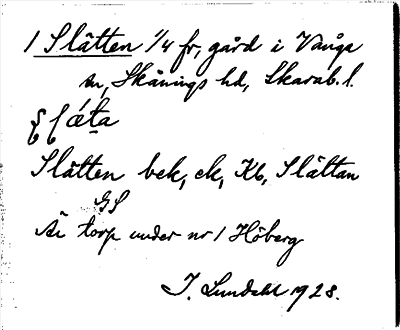 1 Slätten 1/4 fr, gård i Vånga
sn, Skånings hd, Skarab. l.
Slätten bek, ek, Kb, Slättan
GS
Är torp under nr 1 Höberg
I. Lundahl 1928.